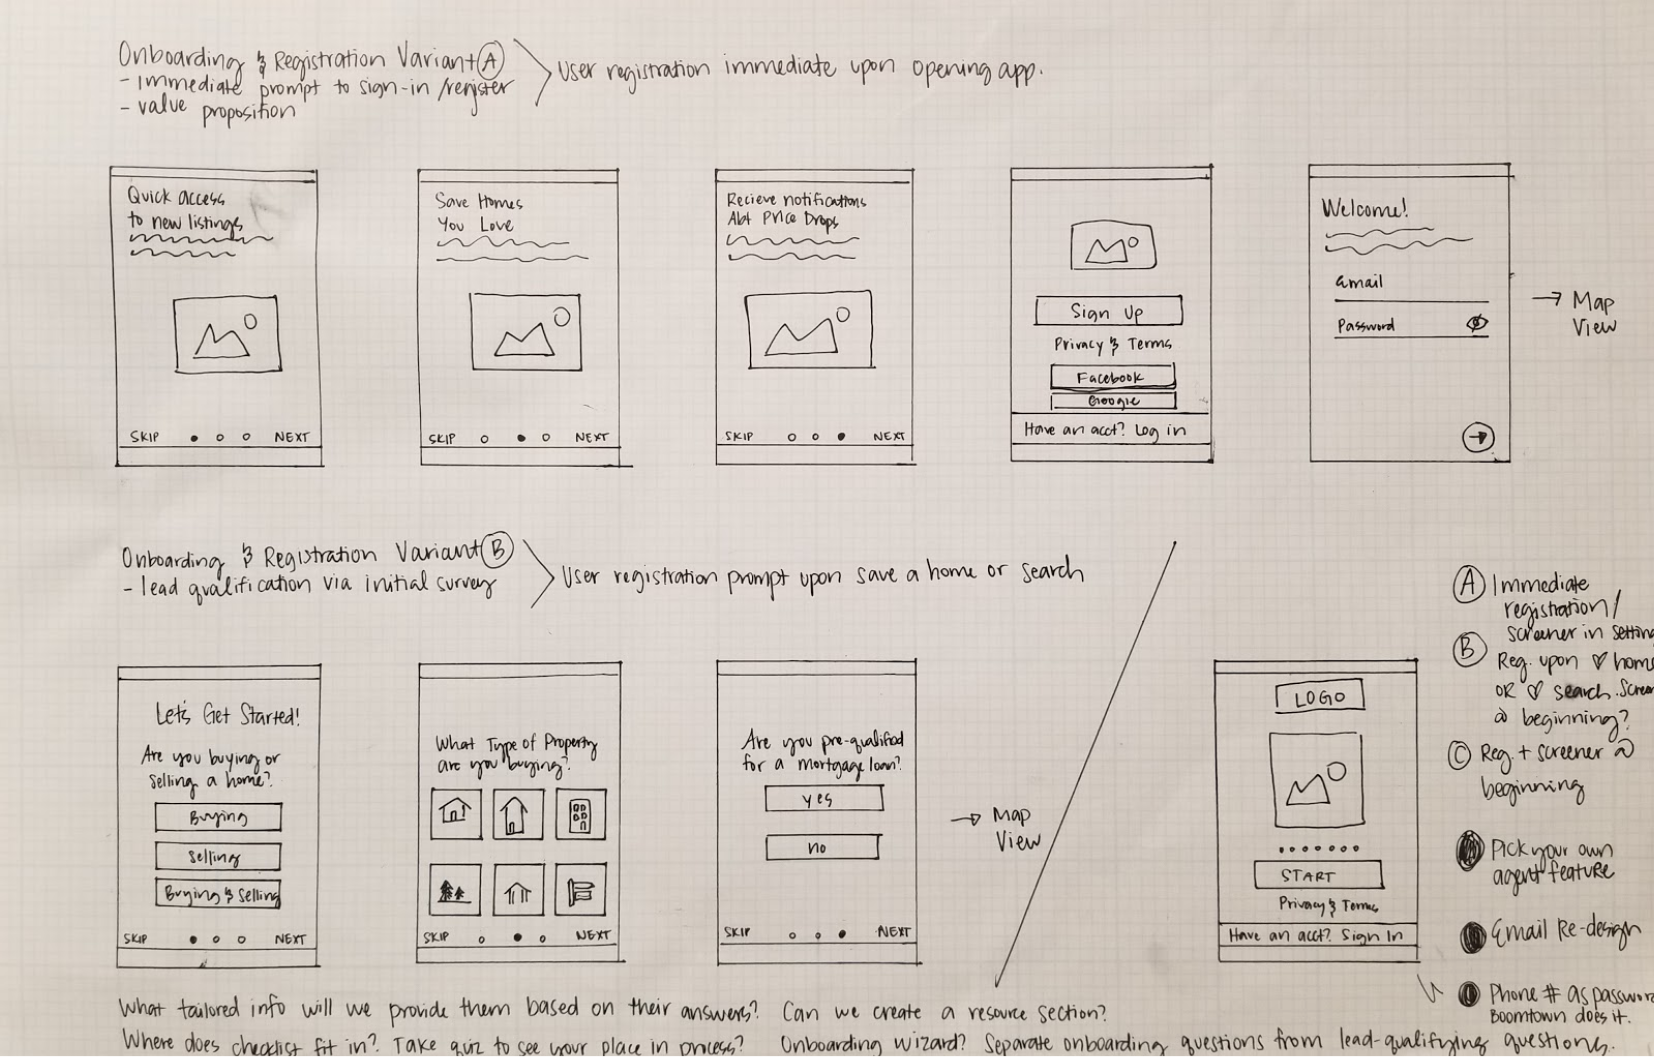 Onboarding & Registration Variant A
- Immediate prompt to sign-in /register
- value proposition
User registration immediate upon opening app.
Quick access
to new listings
SKIP NEXT
Save Homes
You Love
SKIP NEXT
Recieve notifications
Abt Price Drops
SKIP NEXT
Sign Up
Privacy & Terms
Facebook
Google
Have an acct? Log in
Welcome!
Email
Password
→ Map
View
Onboarding & Registration Variant B
- lead qualification via initial survey
User registration prompt upon save a home or search
Let's Get Started!
Are you buying or
selling a home?
Buying
Selling
Buying & Selling
SKIP NEXT
What Type of Property
are you buying?
SKIP NEXT
Are you pre-qualified
for a mortgage loan?
yes
no
SKIP NEXT
→ Map
View
LOGO
START
Privacy & Terms
Have an acct? Sign In
A Immediate
registration/
screener in
B Reg. upon ♡
OR ♡ search.
@ beginning?
C Reg. + screener @
beginning
Pick your own
agent feature
Email Re-design
Phone # as
Boomtown does it.
What tailored info will we provide them based on their answers? Can we create a resource section?
Where does checklist fit in? Take quiz to see your place in process? Onboarding Wizard? Separate onboarding questions from lead-qualifying questions.